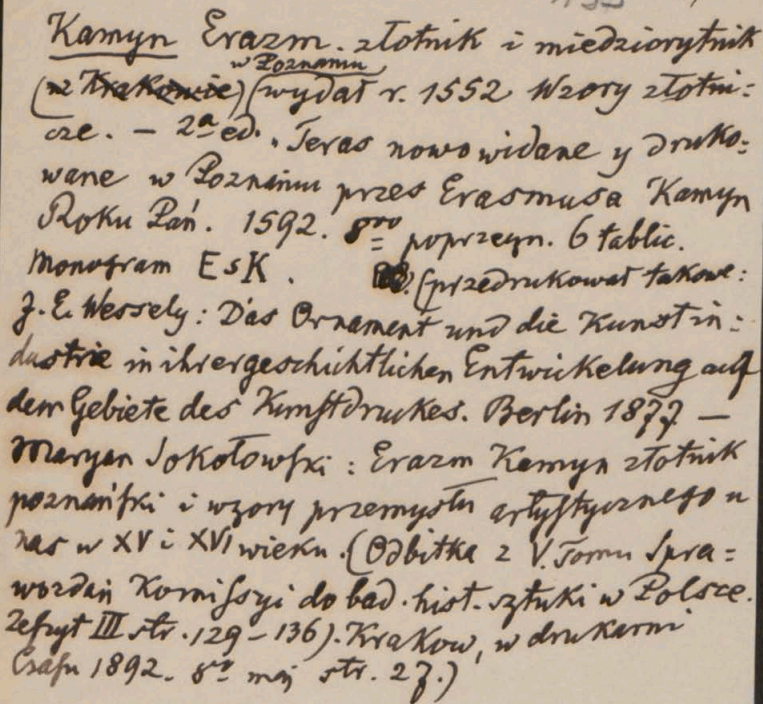 Kamyn Erazm. złotnik i miedziorytnik
w Poznaniu
(w Krakowie) (wydał r. 1552 Wzory złotni=
cze. – 2ª ed. „Teras nowo widane y druko=
wane w Poznaniu przes Erasmusa Kamyn
Roku Pań. 1592. 8vo poprzeczn. 6 tablic.
Monogram EsK. (przedrukował takowe:
J. E. Wessely: Das Ornament und die Kunstin=
dustrie in ihrer geschichtlichen Entwickelung auf
dem Gebiete des Kunstdruckes. Berlin 1877 —
Maryan Sokołowski: Erazm Kamyn złotnik
poznański i wzory przemysłu artystycznego u
nas w XV i XVI wieku. (Odbitka z V. Tomu Spra=
wozdań Komissyi do bad. hist. sztuki w Polsce.
Zeszyt III str. 129–136). Krakow, w drukarni
Czasu 1892. 8vo maj str. 27.)